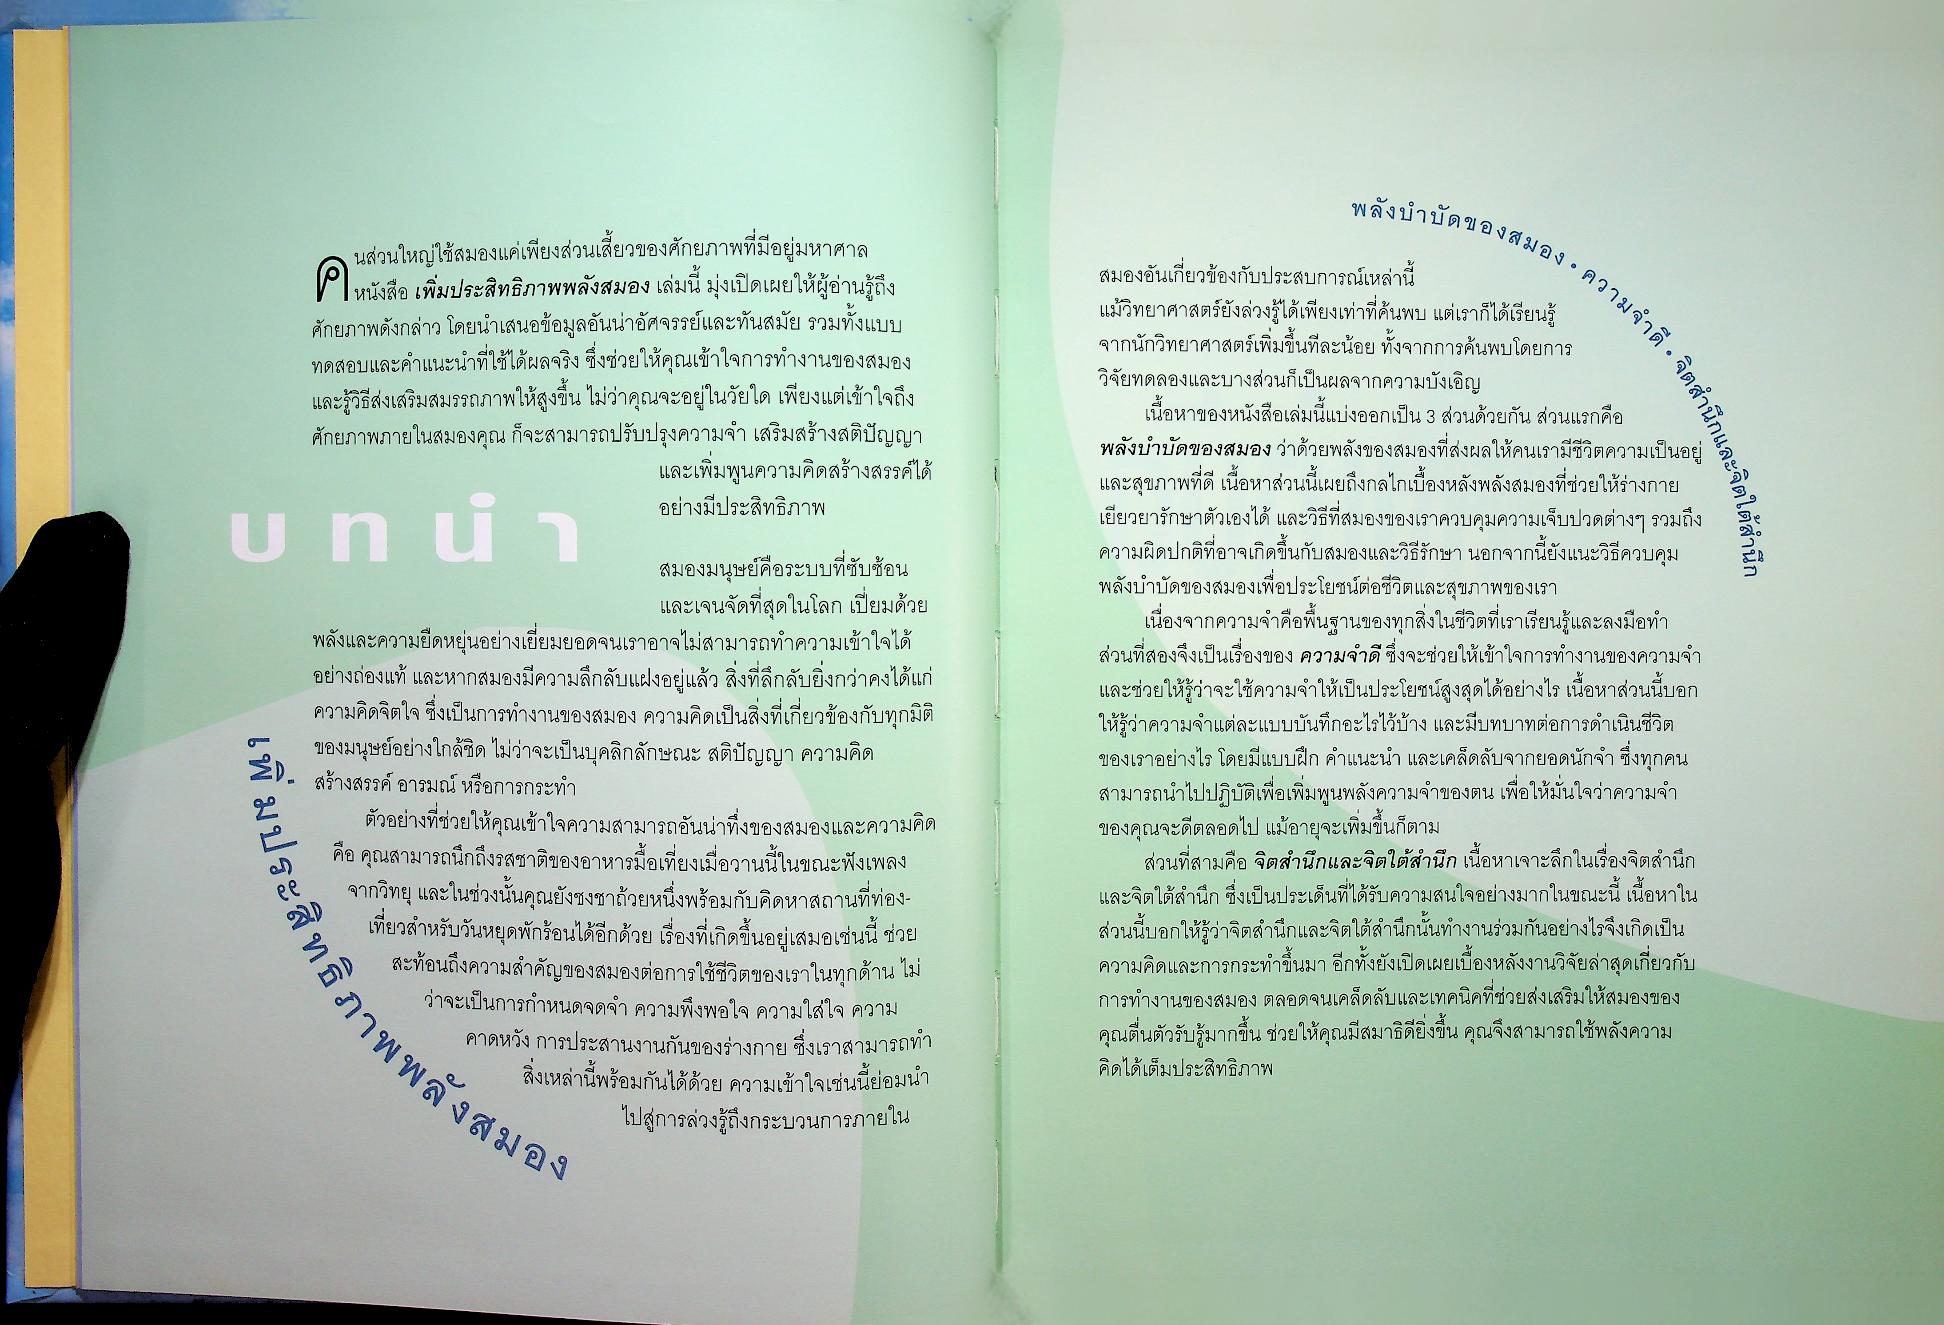 บทนำ
คนส่วนใหญ่ใช้สมองแค่เพียงส่วนเสี้ยวของศักยภาพที่มีอยู่มหาศาล
หนังสือ เพิ่มประสิทธิภาพพลังสมอง เล่มนี้ มุ่งเปิดเผยให้ผู้อ่านรู้ถึง
ศักยภาพดังกล่าว โดยนำเสนอข้อมูลอันน่าอัศจรรย์และทันสมัย รวมทั้งแบบ
ทดสอบและคำแนะนำที่ใช้ได้ผลจริง ซึ่งช่วยให้คุณเข้าใจการทำงานของสมอง
และรู้วิธีส่งเสริมสมรรถภาพให้สูงขึ้น ไม่ว่าคุณจะอยู่ในวัยใด เพียงแต่เข้าใจถึง
ศักยภาพภายในสมองคุณ ก็จะสามารถปรับปรุงความจำ เสริมสร้างสติปัญญา
และเพิ่มพูนความคิดสร้างสรรค์ได้
อย่างมีประสิทธิภาพ
สมองมนุษย์คือระบบที่ซับซ้อน
และเจนจัดที่สุดในโลก เปี่ยมด้วย
พลังและความยืดหยุ่นอย่างเยี่ยมยอดจนเราอาจไม่สามารถทำความเข้าใจได้
อย่างถ่องแท้ และหากสมองมีความลึกลับแฝงอยู่แล้ว สิ่งที่ลึกลับยิ่งกว่าคงได้แก่
ความคิดจิตใจ ซึ่งเป็นการทำงานของสมอง ความคิดเป็นสิ่งที่เกี่ยวข้องกับทุกมิติ
ของมนุษย์อย่างใกล้ชิด ไม่ว่าจะเป็นบุคลิกลักษณะ สติปัญญา ความคิด
สร้างสรรค์ อารมณ์ หรือการกระทำ
ตัวอย่างที่ช่วยให้คุณเข้าใจความสามารถอันน่าทึ่งของสมองและความคิด
คือ คุณสามารถนึกถึงรสชาติของอาหารมื้อเที่ยงเมื่อวานนี้ในขณะฟังเพลง
จากวิทยุ และในช่วงนั้นคุณยังชงชาถ้วยหนึ่งพร้อมกับคิดหาสถานที่ท่อง-
เที่ยวสำหรับวันหยุดพักร้อนได้อีกด้วย เรื่องที่เกิดขึ้นอยู่เสมอเช่นนี้ ช่วย
สะท้อนถึงความสำคัญของสมองต่อการใช้ชีวิตของเราในทุกด้าน ไม่
ว่าจะเป็นการกำหนดจดจำ ความพึงพอใจ ความใส่ใจ ความ
คาดหวัง การประสานงานกันของร่างกาย ซึ่งเราสามารถทำ
สิ่งเหล่านี้พร้อมกันได้ด้วย ความเข้าใจเช่นนี้ย่อมนำ
ไปสู่การล่วงรู้ถึงกระบวนการภายใน
เพิ่มประสิทธิภาพพลังสมอง
พลังบำบัดของสมอง • ความจำดี • จิตสำนึกและจิตใต้สำนึก
สมองอันเกี่ยวข้องกับประสบการณ์เหล่านี้
แม้วิทยาศาสตร์ยังล่วงรู้ได้เพียงเท่าที่ค้นพบ แต่เราก็ได้เรียนรู้
จากนักวิทยาศาสตร์เพิ่มขึ้นทีละน้อย ทั้งจากการค้นพบโดยการ
วิจัยทดลองและบางส่วนก็เป็นผลจากความบังเอิญ
เนื้อหาของหนังสือเล่มนี้แบ่งออกเป็น 3 ส่วนด้วยกัน ส่วนแรกคือ
พลังบำบัดของสมอง ว่าด้วยพลังของสมองที่ส่งผลให้คนเรามีชีวิตความเป็นอยู่
และสุขภาพที่ดี เนื้อหาส่วนนี้เผยถึงกลไกเบื้องหลังพลังสมองที่ช่วยให้ร่างกาย
เยียวยารักษาตัวเองได้ และวิธีที่สมองของเราควบคุมความเจ็บปวดต่างๆ รวมถึง
ความผิดปกติที่อาจเกิดขึ้นกับสมองและวิธีรักษา นอกจากนี้ยังแนะวิธีควบคุม
พลังบำบัดของสมองเพื่อประโยชน์ต่อชีวิตและสุขภาพของเรา
เนื่องจากความจำคือพื้นฐานของทุกสิ่งในชีวิตที่เราเรียนรู้และลงมือทำ
ส่วนที่สองจึงเป็นเรื่องของ ความจำดี ซึ่งจะช่วยให้เข้าใจการทำงานของความจำ
และช่วยให้รู้ว่าจะใช้ความจำให้เป็นประโยชน์สูงสุดได้อย่างไร เนื้อหาส่วนนี้บอก
ให้รู้ว่าความจำแต่ละแบบบันทึกอะไรไว้บ้าง และมีบทบาทต่อการดำเนินชีวิต
ของเราอย่างไร โดยมีแบบฝึก คำแนะนำ และเคล็ดลับจากยอดนักจำ ซึ่งทุกคน
สามารถนำไปปฏิบัติเพื่อเพิ่มพูนพลังความจำของตน เพื่อให้มั่นใจว่าความจำ
ของคุณจะดีตลอดไป แม้อายุจะเพิ่มขึ้นก็ตาม
ส่วนที่สามคือ จิตสำนึกและจิตใต้สำนึก เนื้อหาเจาะลึกในเรื่องจิตสำนึก
และจิตใต้สำนึก ซึ่งเป็นประเด็นที่ได้รับความสนใจอย่างมากในขณะนี้ เนื้อหาใน
ส่วนนี้บอกให้รู้ว่าจิตสำนึกและจิตใต้สำนึกนั้นทำงานร่วมกันอย่างไรจึงเกิดเป็น
ความคิดและการกระทำขึ้นมา อีกทั้งยังเปิดเผยเบื้องหลังงานวิจัยล่าสุดเกี่ยวกับ
การทำงานของสมอง ตลอดจนเคล็ดลับและเทคนิคที่ช่วยส่งเสริมให้สมองของ
คุณตื่นตัวรับรู้มากขึ้น ช่วยให้คุณมีสมาธิดียิ่งขึ้น คุณจึงสามารถใช้พลังความ
คิดได้เต็มประสิทธิภาพ